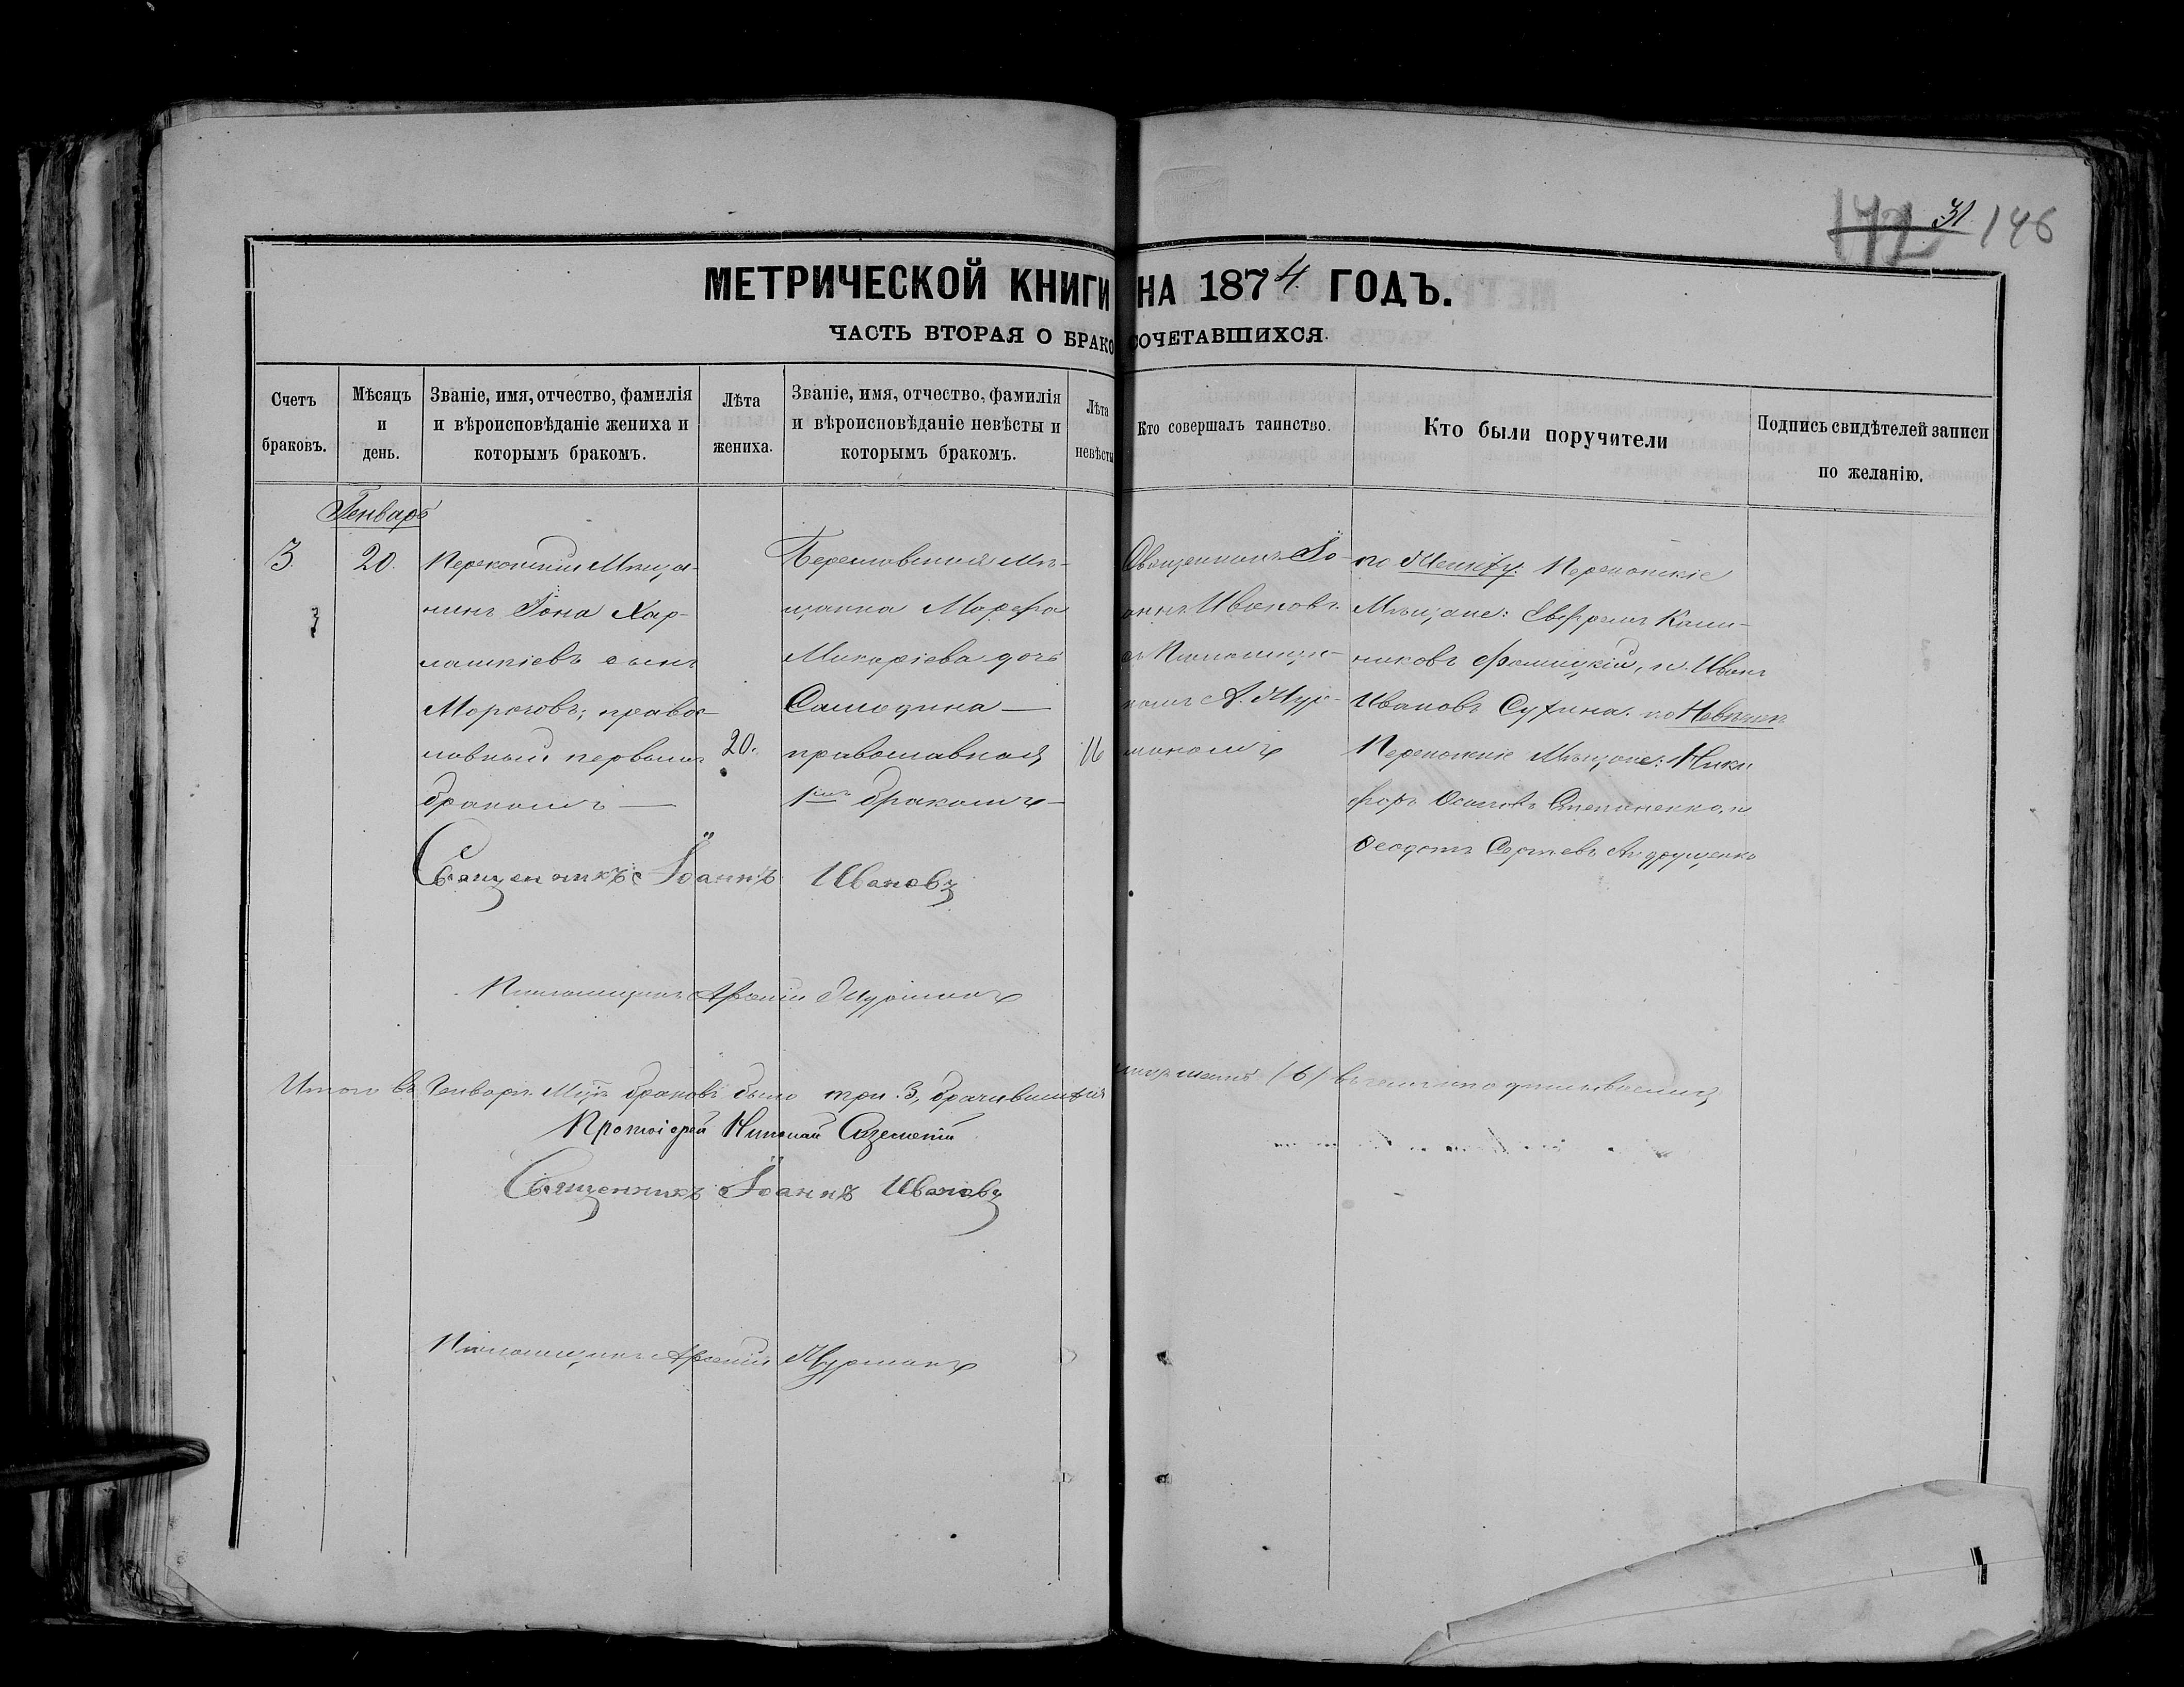 172 31 146
МЕТРИЧЕСКОЙ КНИГИ НА 1874 ГОДЪ.
ЧАСТЬ ВТОРАЯ О БРАКОСОЧЕТАВШИХСЯ.
Счетъ браковъ.
Мѣсяцъ и день.
Званіе, имя, отчество, фамилія
и вѣроисповѣданіе жениха и
которымъ бракомъ.
Лѣта жениха.
Званіе, имя, отчество, фамилія
и вѣроисповѣданіе невѣсты и
которымъ бракомъ.
Лѣта невѣсты
Кто совершалъ таинство.
Кто были поручители
Подпись свидѣтелей записи
по желанію.
Генварь
3.
20.
Перекопскій Мѣща-
нинъ Іона Хар-
лампіевъ сынъ
Морозовъ; правос-
лавный первымъ
бракомъ
20.
мѣ-
щанка Марфа
Макаріева дочь
православная
1мъ бракомъ
16
Священникъ Іо-
аннъ Ивановъ
съ Псаломщи-
комъ А.
по Жениху: Перекопскіе
Мѣщане:
и Иванъ
Ивановъ Сухина. по Невѣстѣ
Перекопскіе Мѣщане: Ники
форъ Осиповъ Степаненко, и
Ѳеодотъ Сергѣевъ Андрущенко
Священникъ Іоаннъ Ивановъ
Псаломщикъ Арсеній
Итого въ Генварѣ Мцѣ браковъ было три. 3,
(6)
Протоіерей Николай
Священникъ Іоаннъ Ивановъ
Псаломщикъ Арсеній